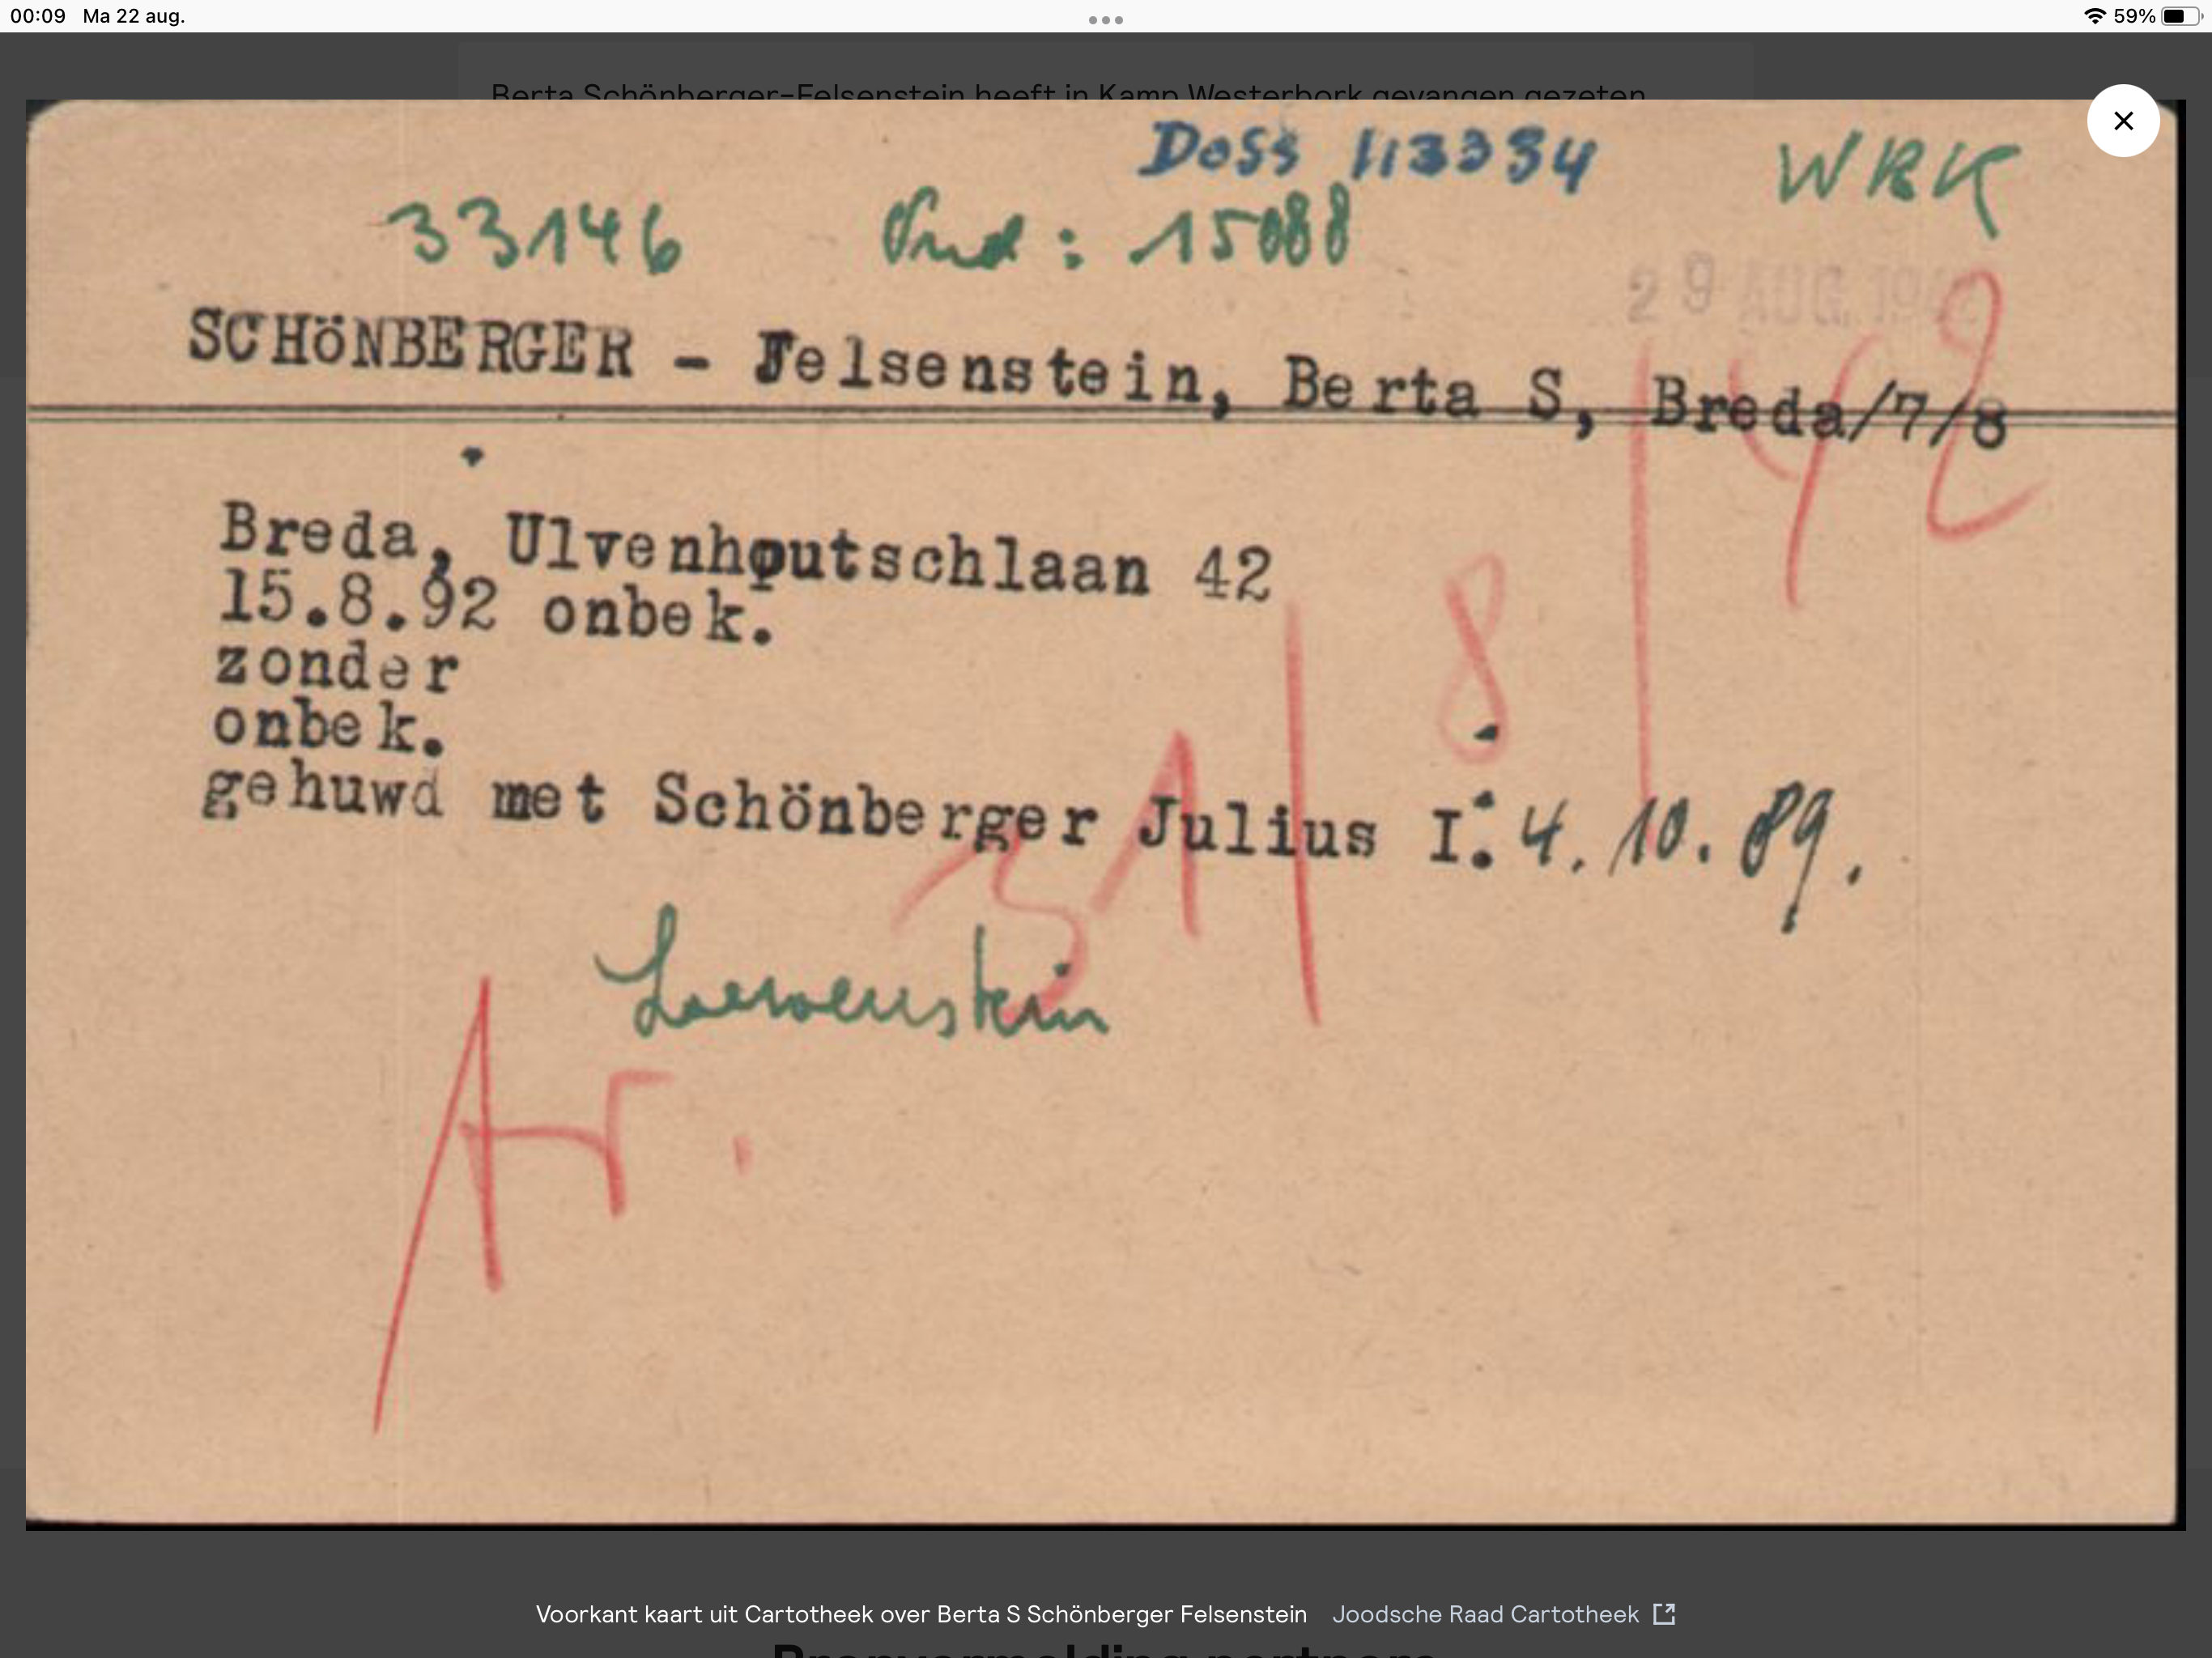 00:09 Ma 22 aug. 59%
Berta Schönberger-Felsenstein heeft in Kamp Westerbork gevangen gezeten
Doss 113334 WRK
33146 : 15088
29 AUG. 1942
SCHöNBERGER - Felsenstein, Berta S, Breda/7/8
Breda, Ulvenhoutschlaan 42
15.8.92 onbek.
zonder
onbek.
gehuwd met Schönberger Julius I. 4.10.89.
31 | 8 | 42
Loewenstein
Voorkant kaart uit Cartotheek over Berta S Schönberger Felsenstein Joodsche Raad Cartotheek
Bronvermelding partners